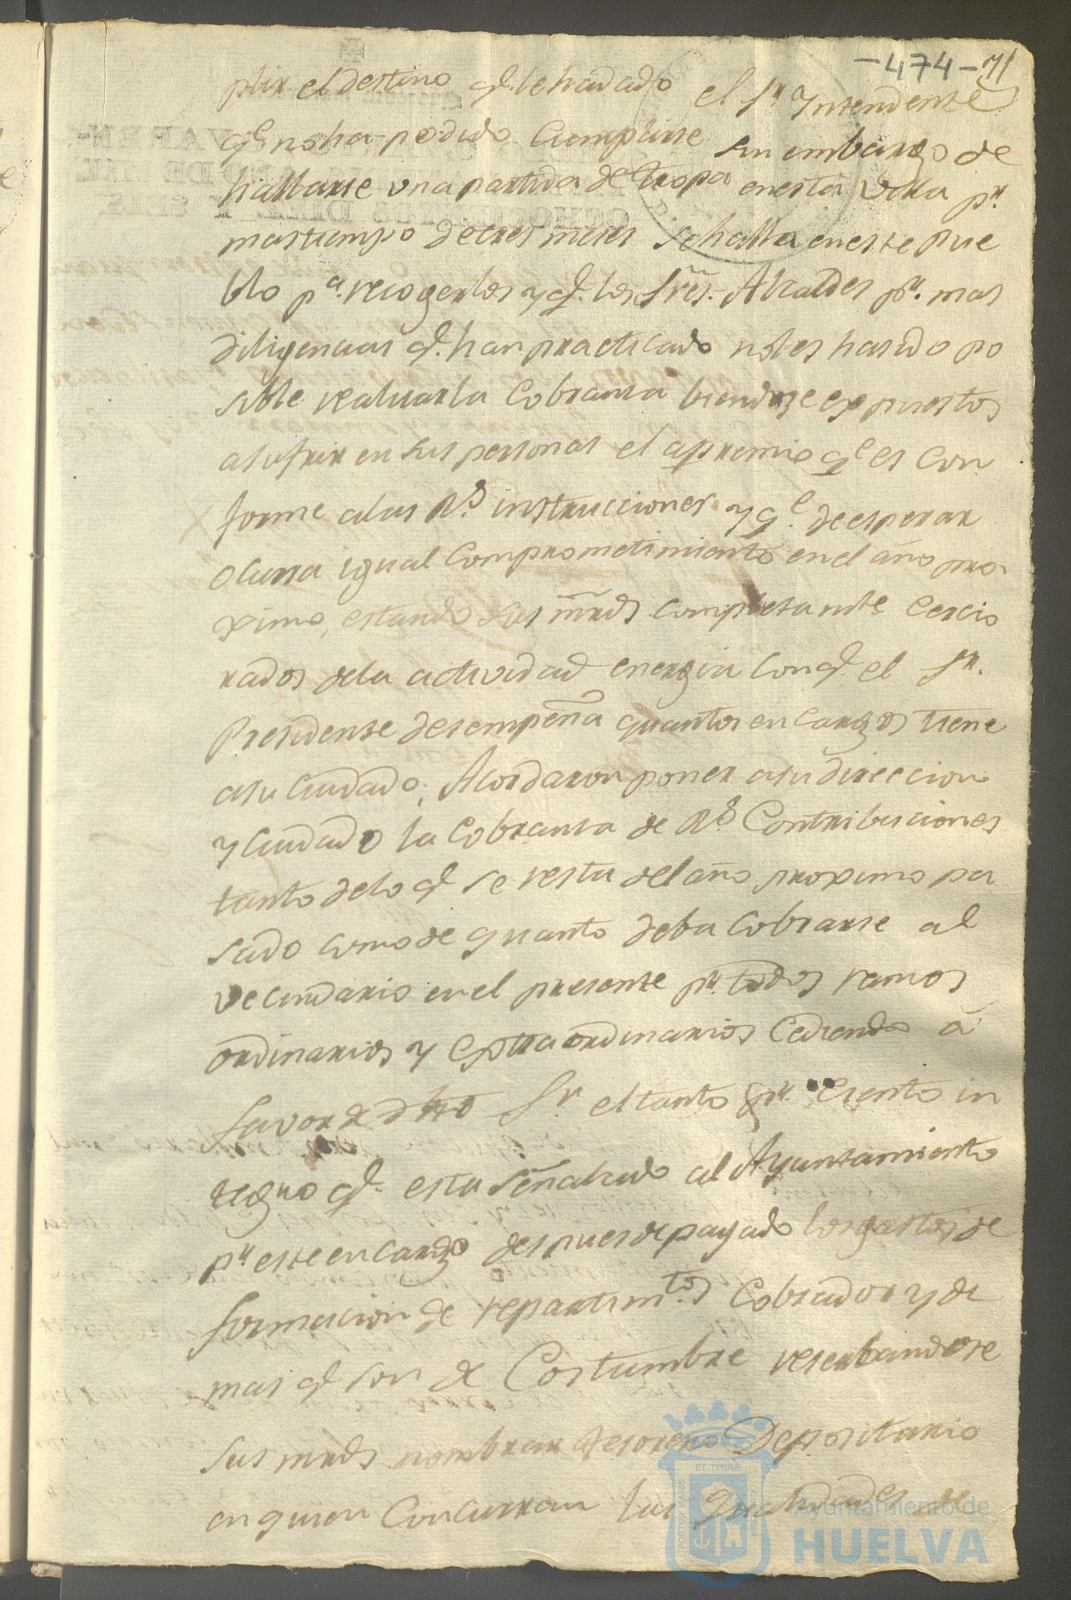 -474- 71
plir el destino q.e le ha dado el Sr Yntendente
q.e no ha podido Cumplirse sin embargo de
hallarse una partida de tropa en esta Villa pr.
mas tiempo de tres meses se halla en este pue
blo pa. recogerlos y q.e los Sres. Alcaldes pr. mas
diligencias q.e han practicado no les ha sido po
sible realizar la Cobranza biendose expuestos
a sufrir en sus personas el apremio q.e es con
forme a las Rs. instrucciones y q.e de esperar
ocurra igual Comprometimiento en el año pro-
ximo, estando sus mrds completamte Cercio
rados de la actividad energia con q.e el Sr.
Presidente desempeña quantos encargos tiene
a su Cuidado; Acordaron poner a su direccion
y Cuidado la Cobranza de Rs Contribuciones
tanto de lo q.e se resta del año proximo pa
sado como de quanto deba Cobrarse al
vecindario en el presente pr. todos ramos
ordinarios y extraordinarios Cediendo a
favor de dho Sr el tanto pr. Ciento in
tegro q.e esta señalado al Ayuntamiento
pr este encargo despues de pagado los gastos de
formacion de repartimtos Cobrador y de
mas q.e son de Costumbre reserbandose
sus mrds nombrar tesorero Depositario
en quien Concurran las qualidades de
Ayuntamiento de
HUELVA